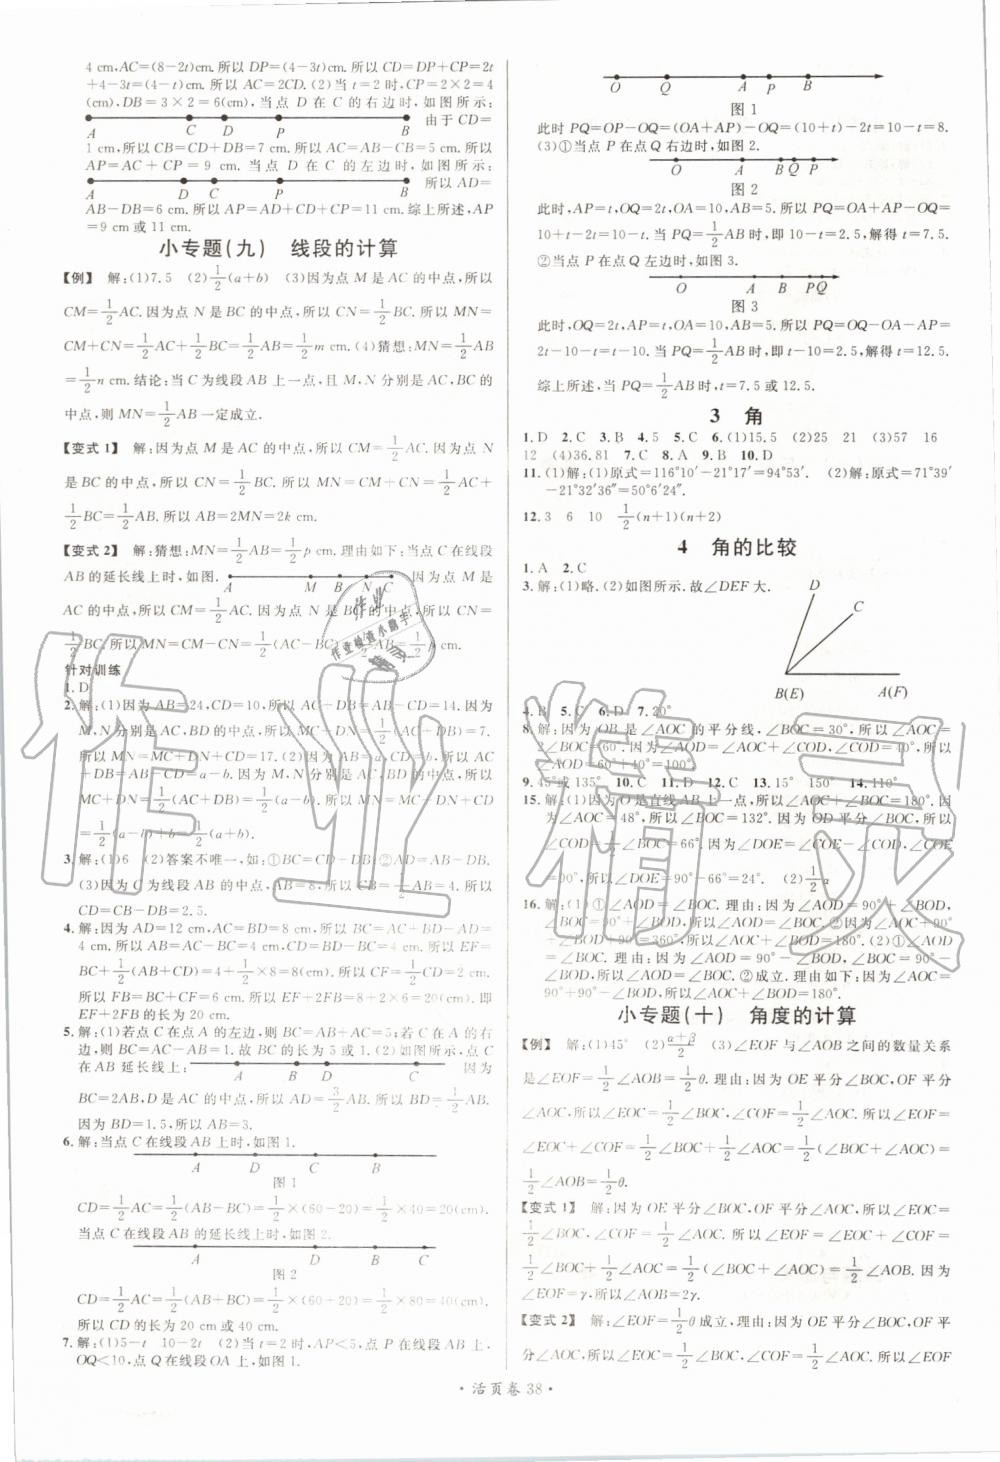 4 cm,AC=(8-2t)cm.所以 DP=(4-3t)cm.所以 CD=DP+CP=2t
+4-3t=(4-t)cm.所以 AC=2CD.(2)当 t=2 时,CP=2×2=4
(cm),DB=3×2=6(cm),当点 D 在 C 的右边时,如图所示:
A C D P B 由于 CD=
1 cm,所以 CB=CD+DB=7 cm.所以 AC=AB-CB=5 cm.所以
AP=AC+CP=9 cm.当点 D 在 C 的左边时,如图所示:
A D C P B 所以 AD=
AB-DB=6 cm.所以 AP=AD+CD+CP=11 cm.综上所述,AP
=9 cm 或 11 cm.
小专题(九) 线段的计算
【例】 解:(1)7.5 (2)1/2(a+b) (3)因为点 M 是 AC 的中点,所以
CM=1/2AC.因为点 N 是 BC 的中点,所以 CN=1/2BC.所以 MN=
CM+CN=1/2AC+1/2BC=1/2AB=1/2m cm.(4)猜想:MN=1/2AB
=1/2n cm.结论:当 C 为线段 AB 上一点,且 M,N 分别是 AC,BC 的
中点,则 MN=1/2AB 一定成立.
【变式 1】 解:因为点 M 是 AC 的中点,所以 CM=1/2AC.因为点 N
是 BC 的中点,所以 CN=1/2BC.所以 MN=CM+CN=1/2AC+
1/2BC=1/2AB.所以 AB=2MN=2k cm.
【变式 2】 解:猜想:MN=1/2AB=1/2p cm.理由如下:当点 C 在线段
AB 的延长线上时,如图. A M B N C 因为点 M 是
AC 的中点,所以 CM=1/2AC.因为点 N 是 BC 的中点,所以 CN=
1/2BC.所以 MN=CM-CN=1/2(AC-BC)=1/2AB=1/2p cm.
针对训练
1.D
2.解:(1)因为 AB=24,CD=10,所以 AC+DB=AB-CD=14.因为
M,N 分别是 AC,BD 的中点,所以 MC+DN=1/2(AC+DB)=7.
所以 MN=MC+DN+CD=17.(2)因为 AB=a,CD=b,所以 AC
+DB=AB-CD=a-b.因为 M,N 分别是 AC,BD 的中点,所以
MC+DN=1/2(AC+DB)=1/2(a-b).所以 MN=MC+DN+CD
=1/2(a-b)+b=1/2(a+b).
3.解:(1)6 (2)答案不唯一,如:①BC=CD+DB;②AD=AB-DB.
(3)因为 C 为线段 AB 的中点,所以 CB=1/2AB=4.所以
CD=CB-DB=2.5.
4.解:因为 AD=12 cm,AC=BD=8 cm,所以 BC=AC+BD-AD=
4 cm.所以 AB=AC-BC=4 cm,CD=BD-BC=4 cm.所以 EF=
BC+1/2(AB+CD)=4+1/2×8=8(cm).所以 CF=1/2CD=2 cm.
所以 FB=BC+CF=6 cm.所以 EF+2FB=8+2×6=20(cm).即
EF+2FB 的长为 20 cm.
5.解:(1)若点 C 在点 A 的左边,则 BC=AB+AC=5;若 C 在 A 的右
边,则 BC=AB-AC=1.故 BC 的长为 5 或 1.(2)如图所示,点 C
在 AB 延长线上: A D B C 因为
BC=2AB,D 是 AC 的中点,所以 AD=3/2AB.所以 BD=1/2AB.
因为 BD=1.5,所以 AB=3.
6.解:当点 C 在线段 AB 上时,如图 1.
A D C B
图 1
CD=1/2AC=1/2(AB-BC)=1/2×(60-20)=1/2×40=20(cm).
当点 C 在线段 AB 的延长线上时,如图 2.
A D B C
图 2
CD=1/2AC=1/2(AB+BC)=1/2×(60+20)=1/2×80=40(cm).
所以 CD 的长为 20 cm 或 40 cm.
7.解:(1)5-t 10-2t (2)当 t=2 时,AP<5,点 P 在线段 AB 上;
OQ<10,点 Q 在线段 OA 上,如图 1.
O Q A P B
图 1
此时 PQ=OP-OQ=(OA+AP)-OQ=(10+t)-2t=10-t=8.
(3)①当点 P 在点 Q 右边时,如图 2.
O A B Q P
图 2
此时,AP=t,OQ=2t,OA=10,AB=5.所以 PQ=OA+AP-OQ=
10+t-2t=10-t.因为当 PQ=1/2AB 时,即 10-t=2.5,解得 t=7.5.
②当点 P 在点 Q 左边时,如图 3.
O A B PQ
图 3
此时,OQ=2t,AP=t,OA=10,AB=5.所以 PQ=OQ-OA-AP=
2t-10-t=t-10.因为当 PQ=1/2AB 时,即 t-10=2.5,解得 t=12.5.
综上所述,当 PQ=1/2AB 时,t=7.5 或 12.5.
3 角
1.D 2.C 3.B 4.5 5.C 6.(1)15.5 (2)25 21 (3)57 16
12 (4)36.81 7.C 8.A 9.B 10.D
11.(1)解:(1)原式=116°10′-21°17′=94°53′. (2)解:原式=71°39′
-21°32′36″=50°6′24″.
12.3 6 10 1/2(n+1)(n+2)
4 角的比较
1.A 2.C
3.解:(1)略.(2)如图所示.故∠DEF 大.
D C
B(E) A(F)
4.B 5.C 6.D 7.20°
8.解:因为 OB 是∠AOC 的平分线,∠BOC=30°,所以∠AOC=
2∠BOC=60°.因为∠AOD=∠AOC+∠COD,∠COD=40°,所以
∠AOD=60°+40°=100°.
9.45°或 135° 10.C 11.D 12.C 13.15° 150° 14.110°
15.解:(1)因为 O 是直线 AB 上一点,所以∠AOC+∠BOC=180°.因
为∠AOC=48°,所以∠BOC=132°.因为 OD 平分∠BOC,所以
∠COD=1/2∠BOC=66°.因为∠DOE=∠COE-∠COD,∠COE
=90°,所以∠DOE=90°-66°=24°. (2)1/2α
16.解:(1)①∠AOD=∠BOC.理由:因为∠AOC=90°+∠AOD,
∠BOD=90°+∠BOC,所以∠AOD=∠BOC.②因为∠AOC+90°
+∠BOD+90°=360°,所以∠AOC+∠BOD=180°.(2)①∠AOD
=∠BOC.理由:因为∠AOD=90°-∠BOD,∠BOC=90°-
∠BOD,所以∠AOD=∠BOC.②成立.理由如下:因为∠AOC=
90°+90°-∠BOD,所以∠AOC+∠BOD=180°.
小专题(十) 角度的计算
【例】 解:(1)45° (2)(α+β)/2 (3)∠EOF 与∠AOB 之间的数量关系
是∠EOF=1/2∠AOB=1/2θ.理由:因为 OE 平分∠BOC,OF 平分
∠AOC,所以∠EOC=1/2∠BOC,∠COF=1/2∠AOC.所以∠EOF=
∠EOC+∠COF=1/2∠BOC+1/2∠AOC=1/2(∠BOC+∠AOC)=
1/2∠AOB=1/2θ.
【变式 1】 解:因为 OE 平分∠BOC,OF 平分∠AOC,所以∠EOC=
1/2∠BOC,∠COF=1/2∠AOC.所以∠EOF=∠EOC+∠COF=
1/2∠BOC+1/2∠AOC=1/2(∠BOC+∠AOC)=1/2∠AOB.因为
∠EOF=γ,所以∠AOB=2γ.
【变式 2】 解:∠EOF=1/2θ 成立.理由:因为 OE 平分∠BOC,OF 平
分∠AOC,所以∠EOC=1/2∠BOC,∠COF=1/2∠AOC.所以∠EOF
·活页卷 38·
作业精灵
作业
作业检查小助手